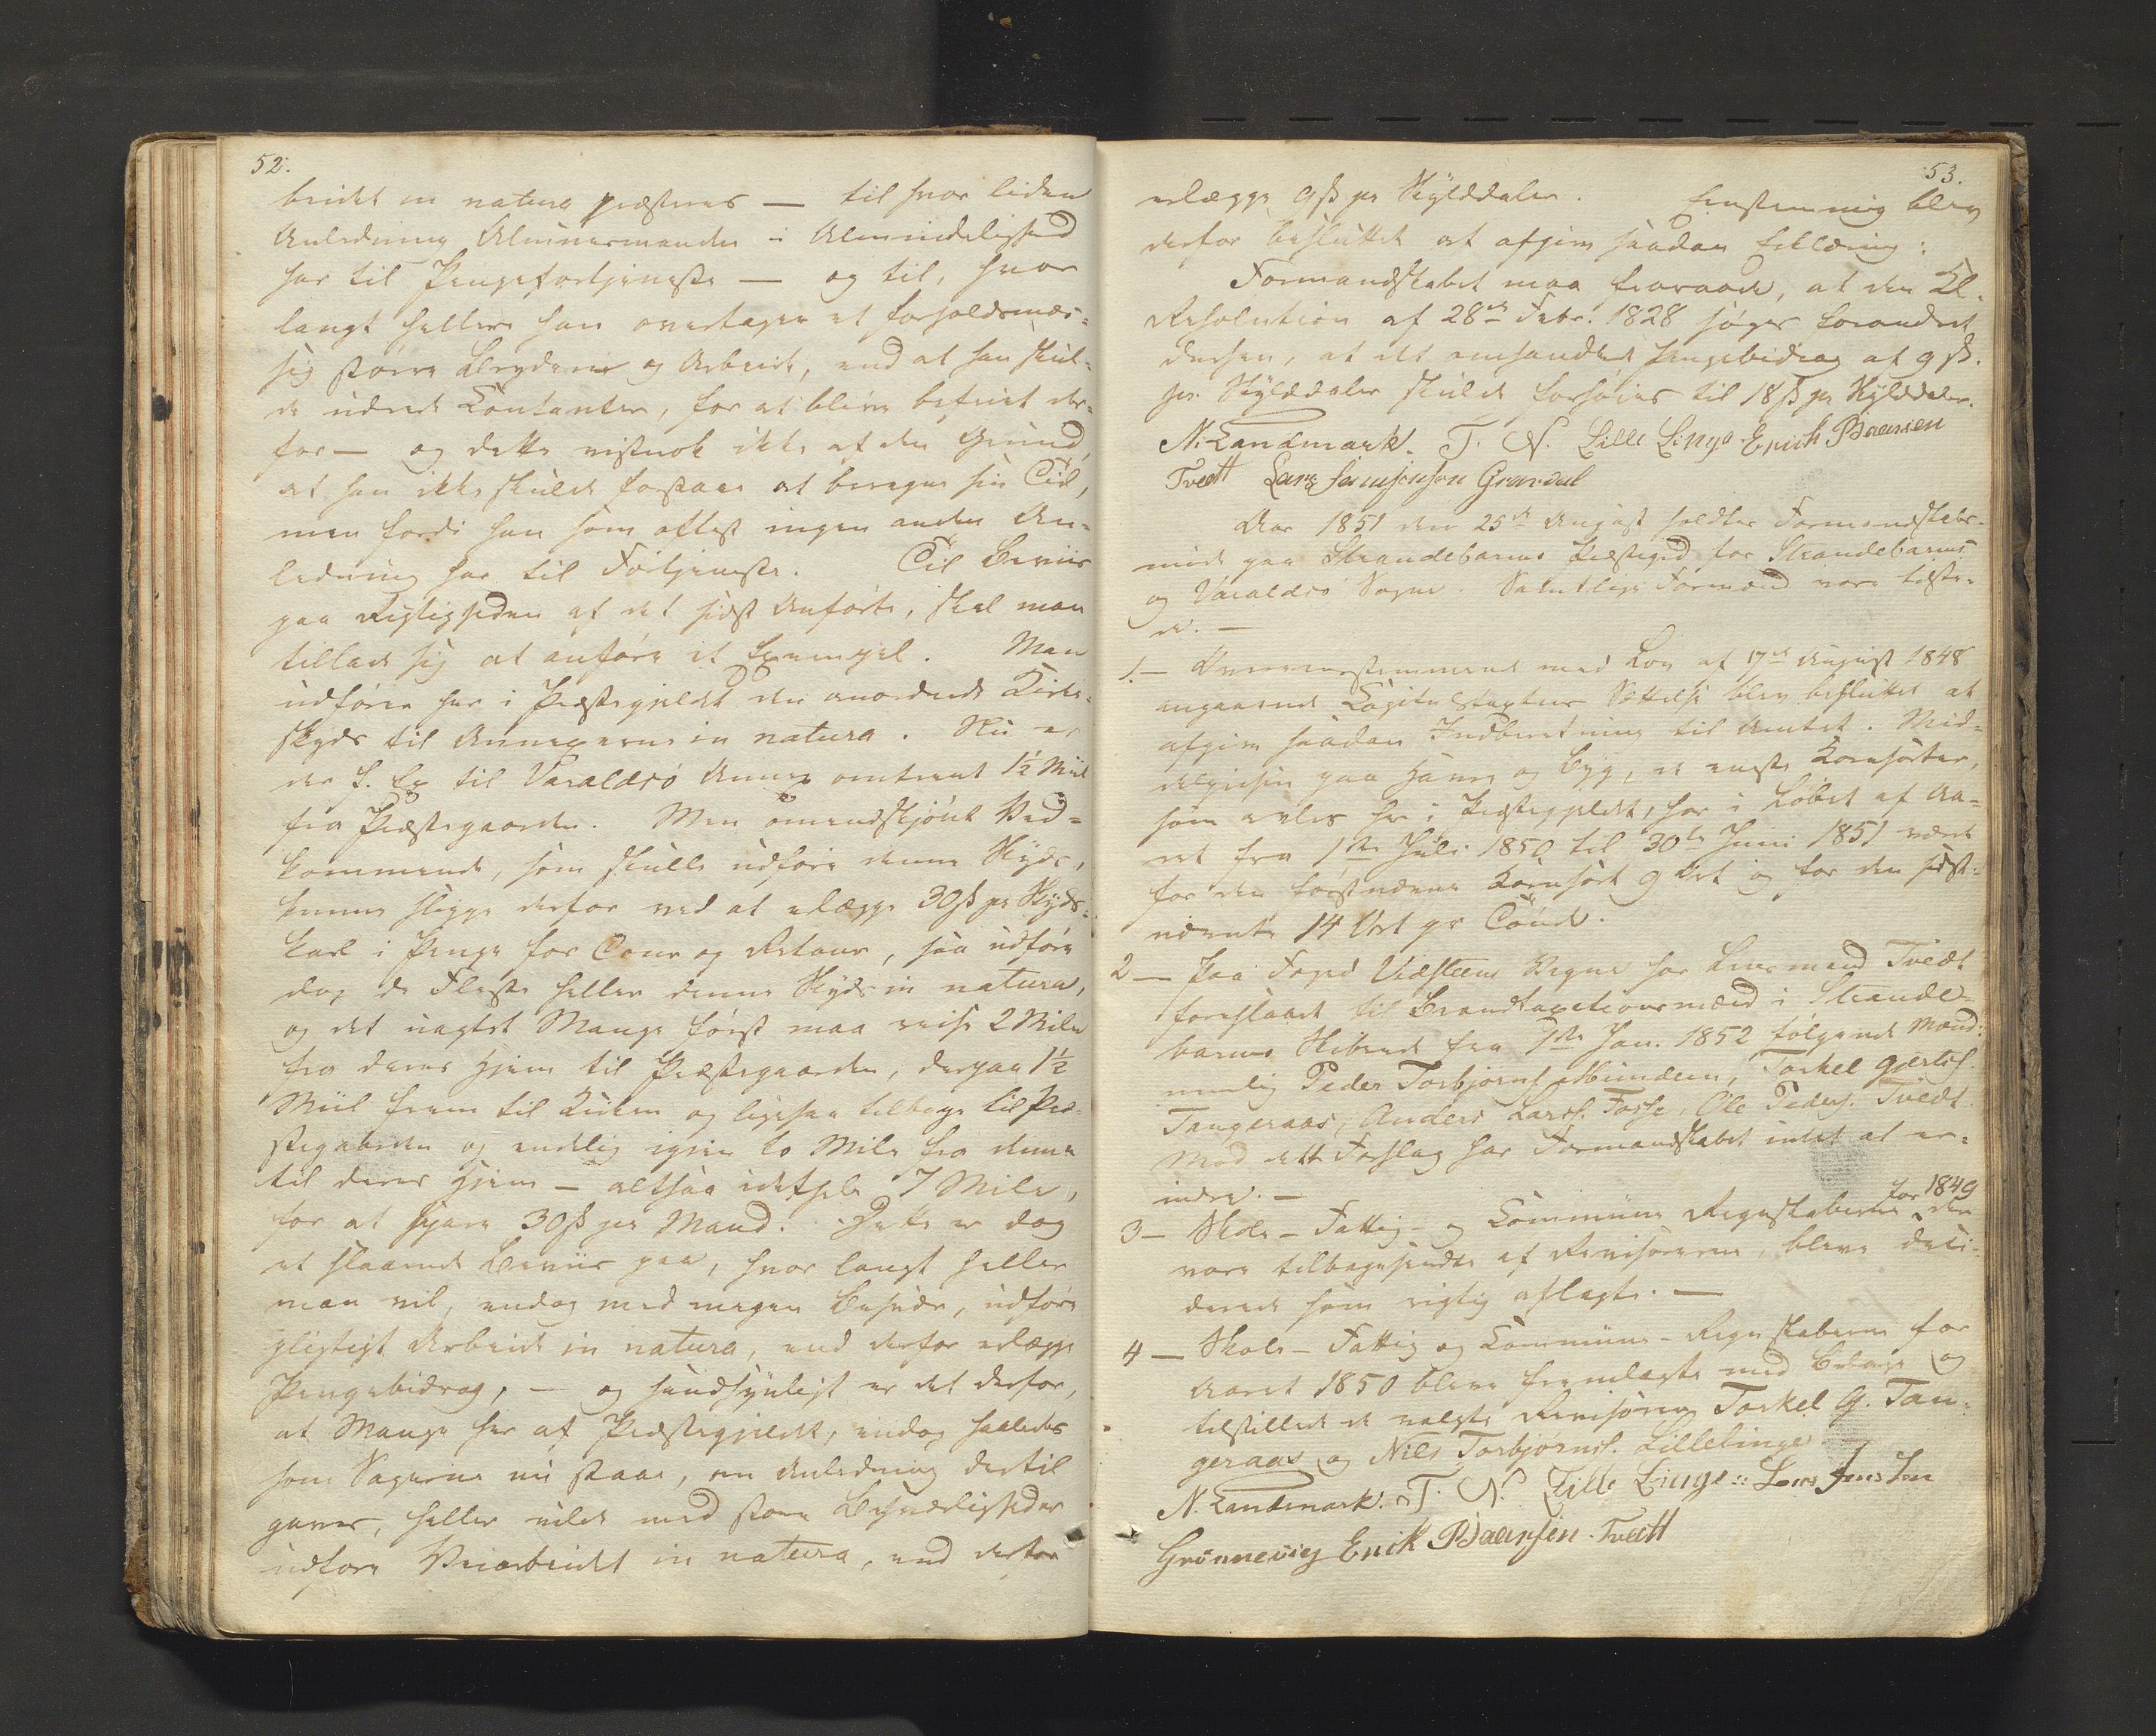 52.
beidet in natura præsteres — til hvor liden
Anledning Almuesmanden i Almindelighed
har til Pengefortjeneste — og til, hvor
langt hellere han overtager et forholdsmæs=
sig større Bryderie og Arbeide, end at han skul=
de udrede Contanter, for at blive befriet der=
for — og dette vistnok ikke af den Grund,
at han ikke skulde forstaae at beregne sin Tid,
men fordi han som oftest ingen anden An=
ledning har til Fortjeneste. Til Beviis
paa Rigtigheden af det sidst Anførte, skal man
tillade sig at anføre et Exempel. Man
udfører her i Præstegjeldet den anordnede Kirke=
skyds til Annexerne in natura. Nu er
der f. Ex til Varaldsø Annex omtrent 1½ Miil
fra Præstegaarden. Men omendskjönt Ved=
kommende, som skulle udføre denne Skyds,
kunne slippe derfor ved at erlægge 30ß pr Skyds=
karl i Penge for Tour og Retour, saa udføre
dog de Fleste heller denne Skyds in natura,
og det uagtet Mange først maa reise 2 Mile
fra deres Hjem til Præstegaarden, derpaa 1½
Miil frem til Kirken og ligesaa tilbage til Præ=
stegaarden og endelig igjen to Mile fra denne
til deres Hjem — altsaa idethele 7 Mile,
for at spare 30ß pr Mand. Dette er dog
et slaaende Beviis paa, hvor langt heller
man vil, endog med megen Besvær, udføre
pligtigt Arbeide in natura, end derfor erlægge
Pengebidrag, — og sandsynligst er det derfor,
at Mange her af Præstegjeldet, endog saaledes
som Sagerne nu staae, om Anledning dertil
gaves, heller vilde med store Besværligheder
udføre Veiarbeidet in natura, end derfor
53.
erlægge 9ß pr Skylddaler. Eenstemmig blev
derfor besluttet at afgive saadan Erklæring:
Formandskabet maa fraraade, at den Kl.
Resolution af 28de Febr. 1828 søges forandret
derhen, at det omhandlede Pengebidrag af 9ß.
pr. Skylddaler skulde forhøies til 18ß pr Skylddaler.
N. Landmark. T. N. Lille Linge Erich Baarsen
Tvedt Lars Grøndal
Aar 1851 den 25de August holdtes Formandskabs=
møde paa Strandebarms Præstegrd for Strandebarms
og Varaldsö Sogne. Samtlige Formænd vare tilste=
de. —
1. — Overensstemmende med Lov af 17de August 1848
angaaende Capitelstaxters Sættelse blev besluttet at
afgive saadan Indberetning til Amtet. Mid=
delprisen paa Havre og Byg, de eneste Kornsorter,
som avles her i Præstegjeldet, har i Löbet af Aa=
ret fra 1ste Juli 1850 til 30te Juni 1851 været
for den førstnævnte Kornsort 9 Ort og for den sidst=
nævnte 14 Ort pr Tönde.
2 — Paa Foged Vidsteens Vegne har Lensmand Tvedt
foreslaaet til Brandtaxtionsmænd i Strande=
barms Skibrede fra 1ste Jan. 1852 følgende Mænd:
nemlig Peder Torbjørns. Mundem, Torkel Gjertss.
Tangeraas, Anders Larss. Fosse, Ole Peders. Tvedt.
Mod dette Forslag har Formandskabet intet at er=
indre. —
3 — Skole- Fattig- og Commüne Regnskaberne for 1849 der
vare tilbagesendte af Revisorerne, bleve deci=
derede som rigtig aflagte. —
4 — Skole- Fattig og Commüne- Regnskaberne for
Aaret 1850 bleve fremlagte med Bilage og
tilstillede de valgte Revisorer Torkel G. Tan=
geraas og Nils Torbjørns. Lillelinge
N. Landmark. T. N. Lille Linge Lars Jensen
Grönnevig Erik Baarsen Tvedt